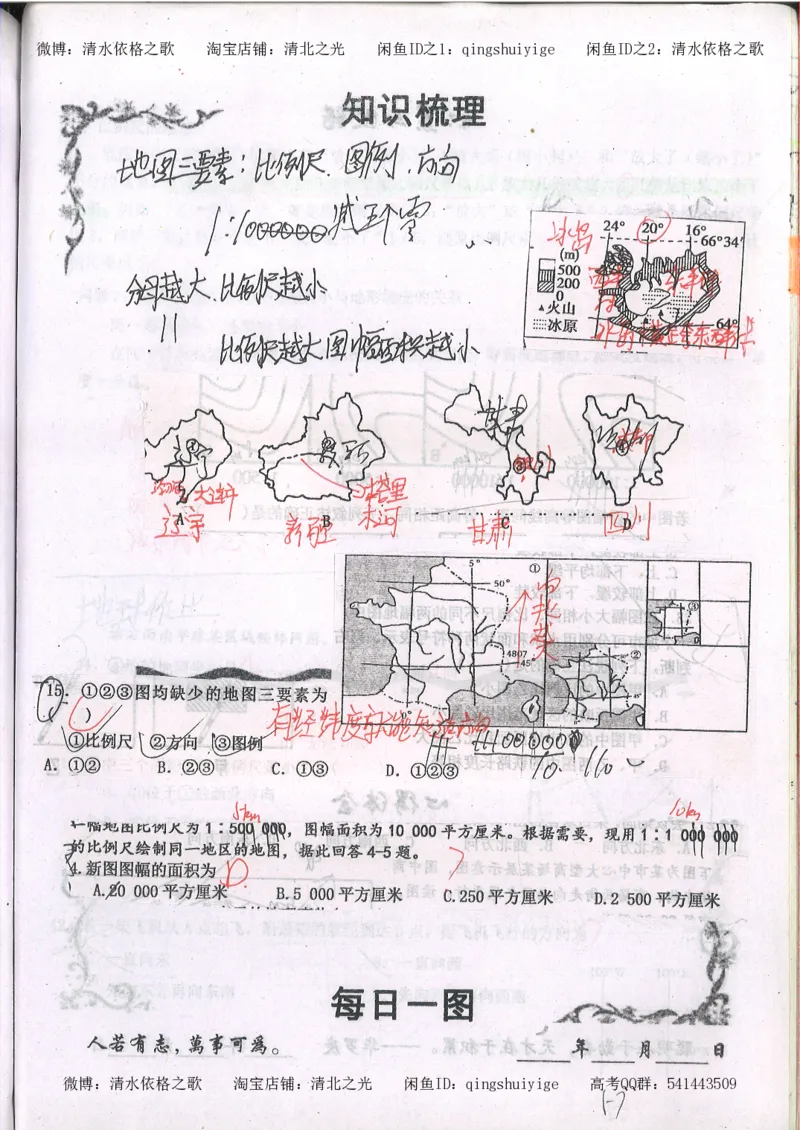 微博：清水依格之歌 淘宝店铺：清北之光 闲鱼ID之1：qingshuiyige 闲鱼ID之2：清水依格之歌
知识梳理
地图三要素：比例尺．图例．方向
1:1000000 减五个零
分母越大．比例尺越小
比例尺越大 图幅面积越小
冰岛
24° 20° 16°
66°34′
(m)
500
200
0
▲火山
冰原
64°
辽宁 大连 A
新疆 塔里木河 B
甘肃 C
成都 四川 D
5°
50°
4807
45
① ② ③
15．①②③图均缺少的地图三要素为
（ ）
有经纬度就能定方向
①比例尺 ②方向 ③图例
A．①② B．②③ C．①③ D．①②③
5km 10km
一幅地图比例尺为1∶500 000，图幅面积为10 000平方厘米。根据需要，现用1∶1 000 000
的比例尺绘制同一地区的地图，据此回答4-5题。
4.新图图幅的面积为 D.
A.20 000平方厘米 B.5 000平方厘米 C.250平方厘米 D.2 500平方厘米
每日一图
人若有志，萬事可為。 年 月 日
微博：清水依格之歌 淘宝店铺：清北之光 闲鱼ID：qingshuiyige 高考QQ群：541443509